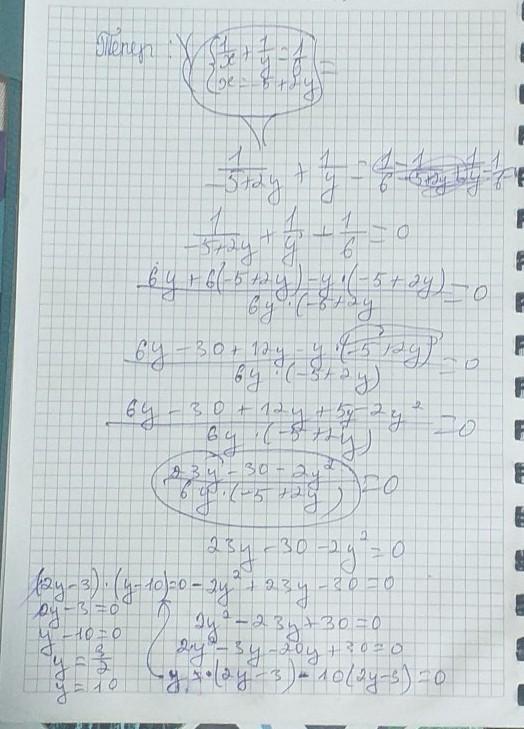 Тепер:
{ 1/x + 1/y = 1/6
{ x = -5 + 2y =
1/(-5+2y) + 1/y = 1/6
1/(-5+2y) + 1/y + 1/6 = 0
(6y + 6(-5+2y) - y·(-5+2y)) / (6y·(-5+2y) = 0
(6y - 30 + 12y - y·(-5+2y)) / (6y·(-5+2y)) = 0
(6y - 30 + 12y + 5y - 2y²) / (6y·(-5+2y)) = 0
(23y - 30 - 2y²) / (6y·(-5+2y)) = 0
23y - 30 - 2y² = 0
-2y² + 23y - 30 = 0
2y² - 23y + 30 = 0
2y² - 3y - 20y + 30 = 0
y·(2y-3) - 10(2y-3) = 0
(2y-3)·(y-10) = 0
2y-3=0
y-10=0
y = 3/2
y = 10